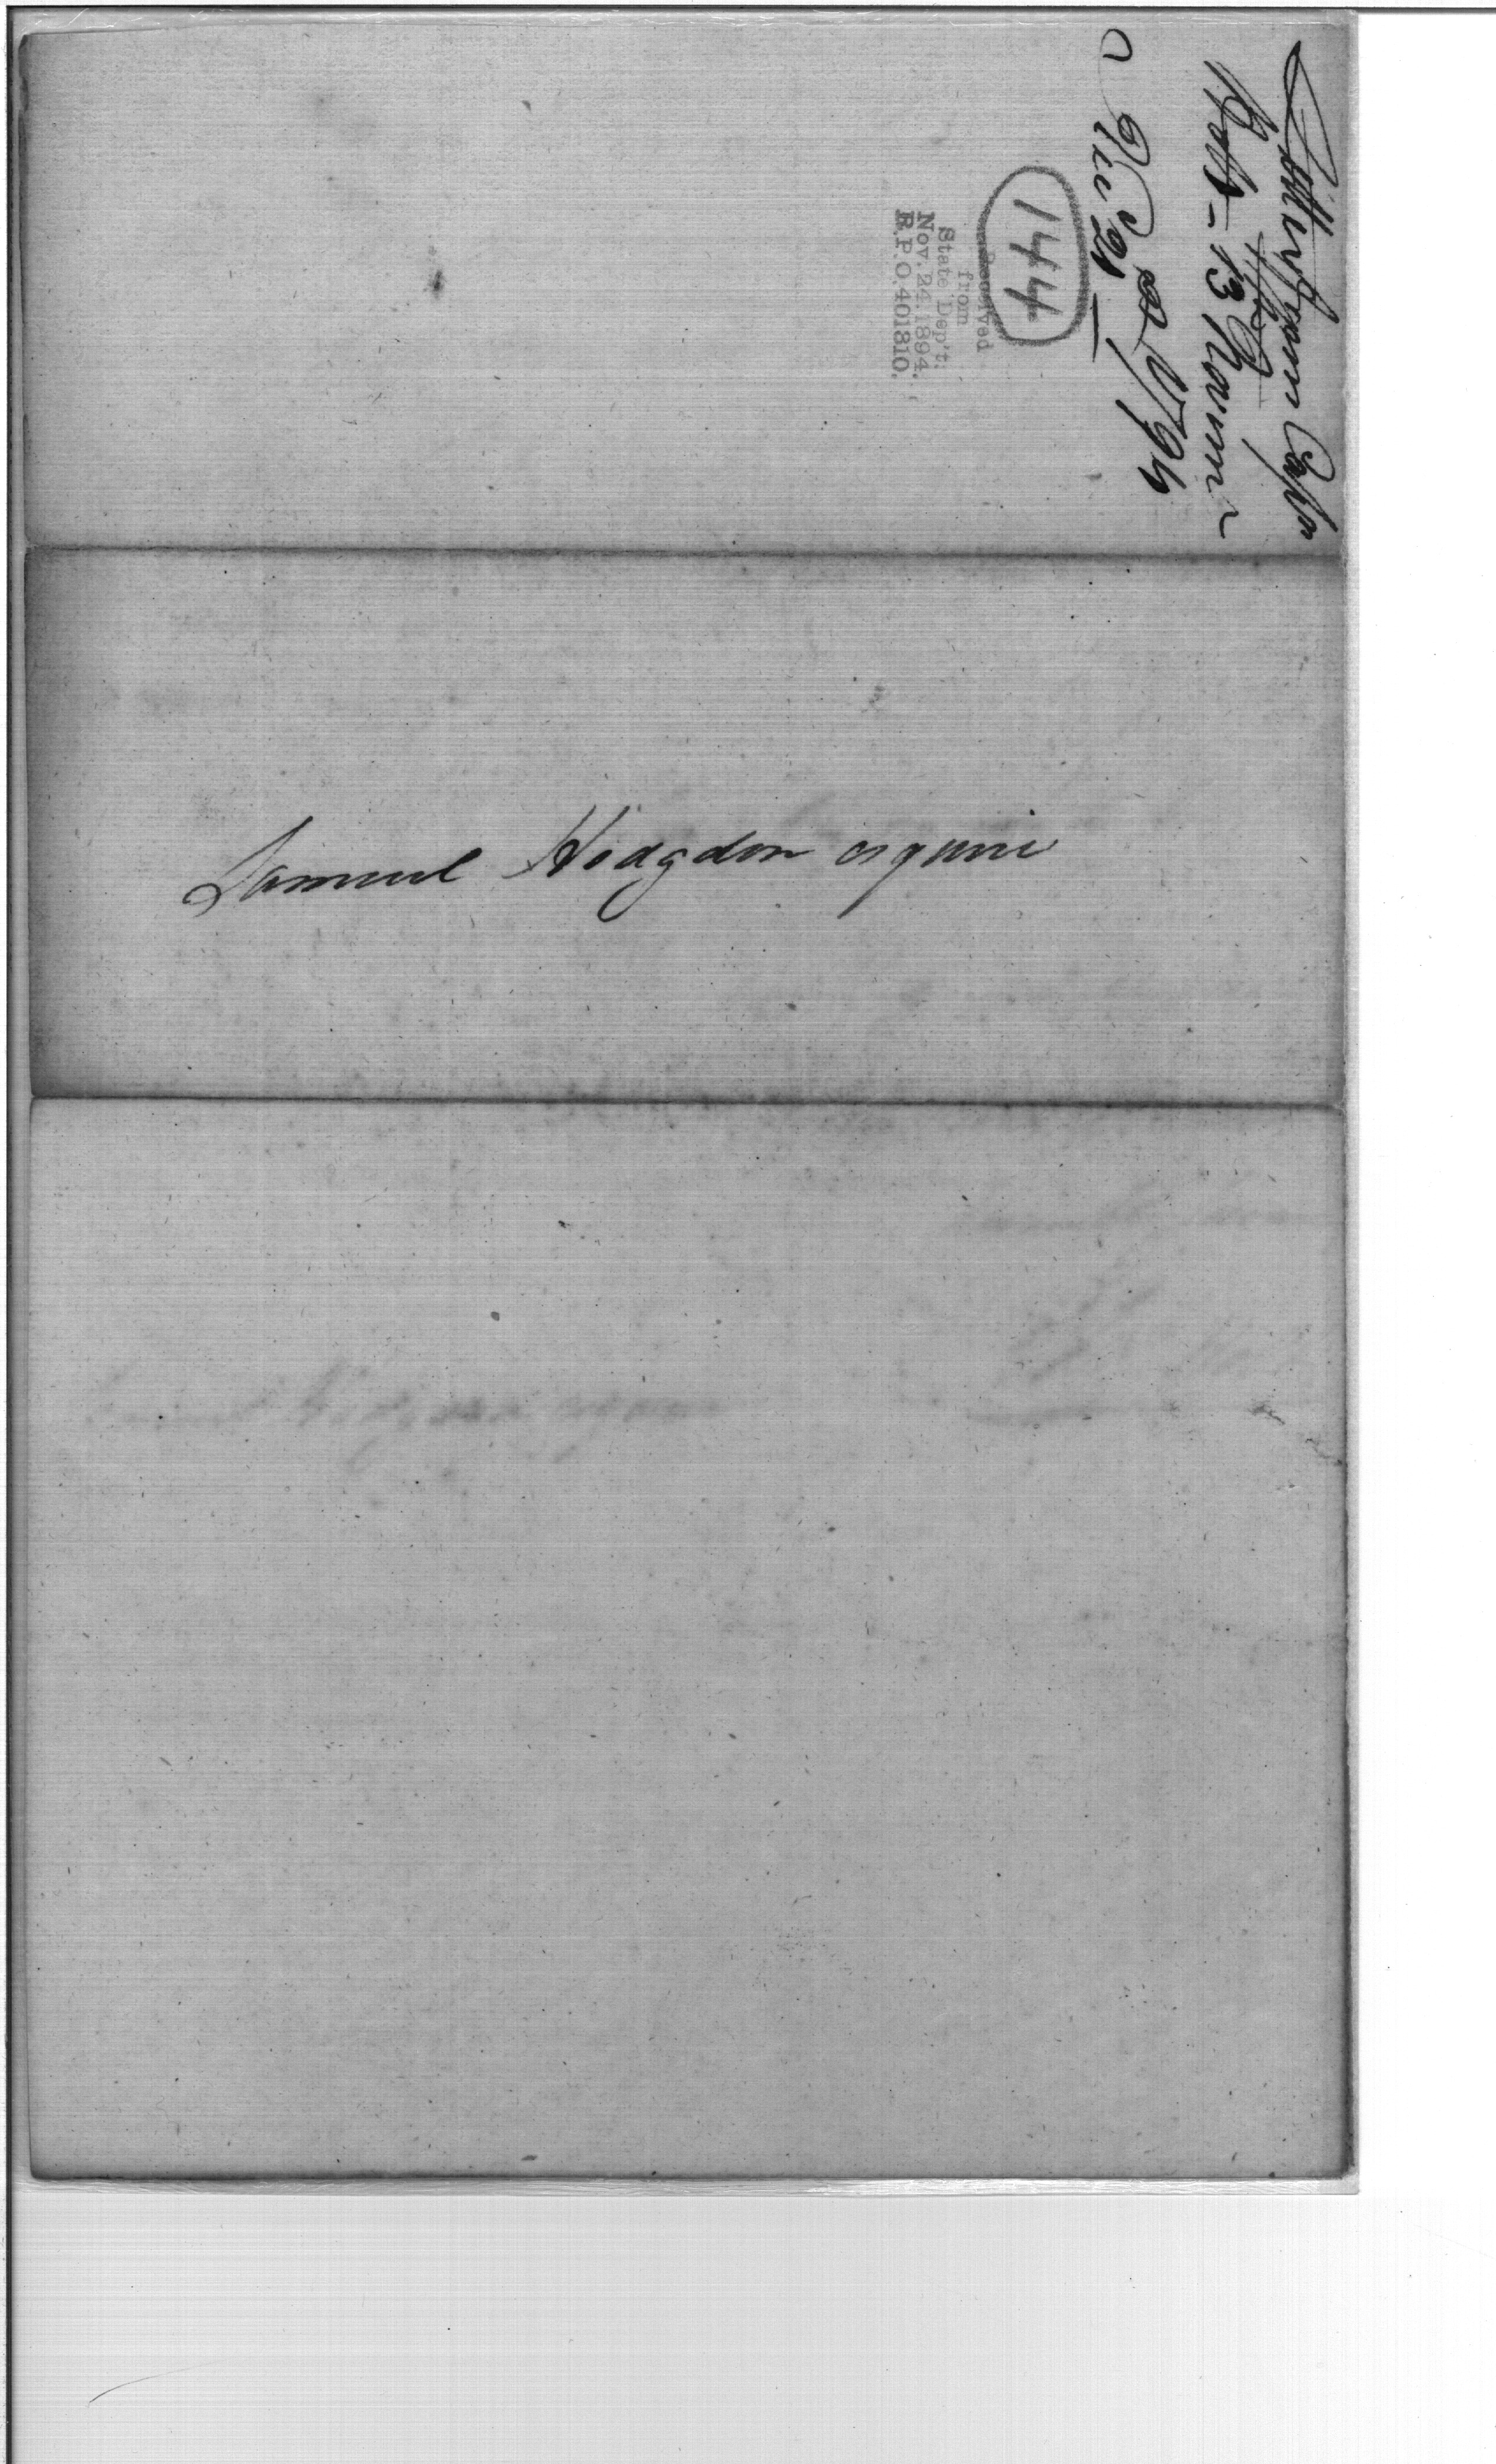 Letter from Capt
13 Novem
1794
Rec'd 21
144
Received
from
State Dep't.
Nov. 24. 1894.
R.P.O. 401810.
Samuel Hodgdon esquire